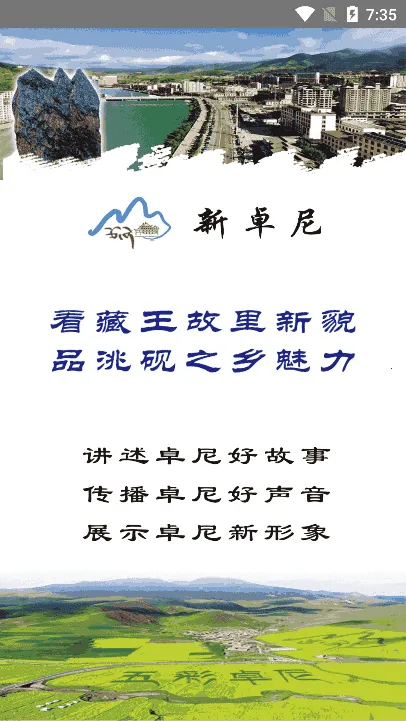 7:35
新卓尼
看藏王故里新貌
品洮砚之乡魅力
讲述卓尼好故事
传播卓尼好声音
展示卓尼新形象
五彩卓尼